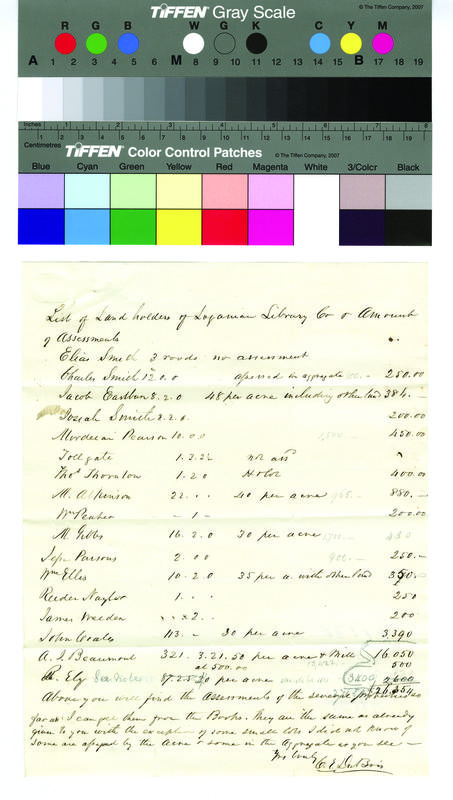 TIFFEN® Gray Scale
© The Tiffen Company, 2007
R G B W G K C Y M
A 1 2 3 4 5 6 M 8 9 10 11 12 13 14 15 B 17 18 19
Inches 1 2 3 4 5 6 7 8
Centimetres 1 2 3 4 5 6 7 8 9 10 11 12 13 14 15 16 17 18 19
TIFFEN® Color Control Patches
© The Tiffen Company, 2007
Blue Cyan Green Yellow Red Magenta White 3/Color Black
List of Land holders of Library Co & Amount
of Assessments
Elias Smith 3 roods no assessment
Charles Smith 12.0.0 assessed in aggregate 250.00
Jacob Eastburn 8.2.0 48 per acre including other land 384.–
Josiah Smith 8.2.0 200.00
Mordecai Pearson 10.0.0 450.00
Tollgate 1.3.22 not ass
Thos Thornton 1.20 400.00
M. Atkinson 22.. 40 per acre 880.–
Wm – 1 – 200.00
M. Gibbs 16.2.0 30 per acre 480
Parsons 2.00 250.–
Wm Ellis 10.2.0 35 per a. with other land 350.–
Reeder Naylor 1.. 250
James 2.. 200
John Coates 113.– 30 per acre 3,390
A. J. Beaumont 321.3.21.50 per acre & Mill 16,050
at 500.00 500
Ely 87.2.5 30 per acre 2,600
Above you will find the Assessments of the several
far as I can get them from the Books. They are the same as already
given to you with the exception of some small lots I did not know of
Some are assessed by the Acre & some in the Aggregate as you see –
Yrs truly